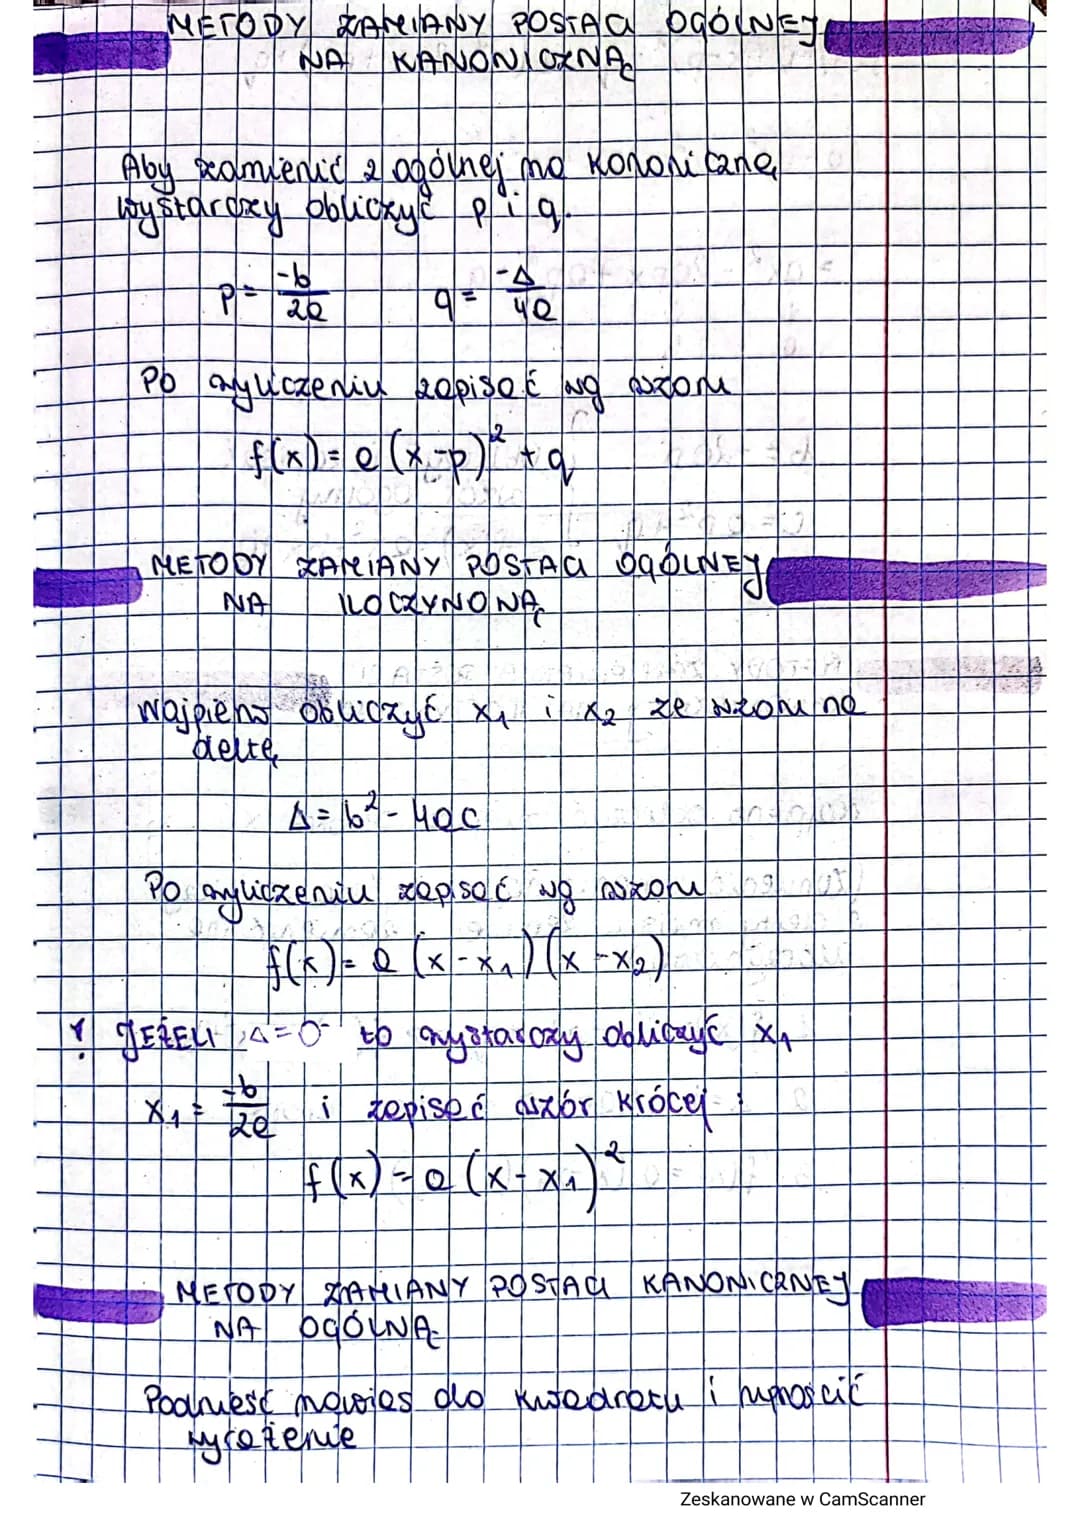 METODY ZAMIANY POSTACI OGÓLNEJ
NA KANONICZNĄ
Aby zamienić z ogólnej na kanoniczną
wystarczy obliczyć p i q.
p = -b/2a q = -Δ/4a
Po wyliczeniu zapisać wg wzoru
f(x) = a(x-p)² + q
METODY ZAMIANY POSTACI OGÓLNEJ
NA ILOCZYNOWĄ
Najpierw obliczyć x₁ i x₂ ze wzoru na
deltę
Δ = b² - 4ac
Po wyliczeniu zapisać wg wzoru
f(x) = a (x-x₁)(x-x₂)
! JEŻELI Δ=0 to wystarczy obliczyć x₁
x₁ = -b/2a i zapisać wzór krócej :
f(x) = a (x-x₁)²
METODY ZAMIANY POSTACI KANONICZNEJ
NA OGÓLNĄ
Podnieść nawias do kwadratu i uprościć
wyrażenie
Zeskanowane w CamScanner